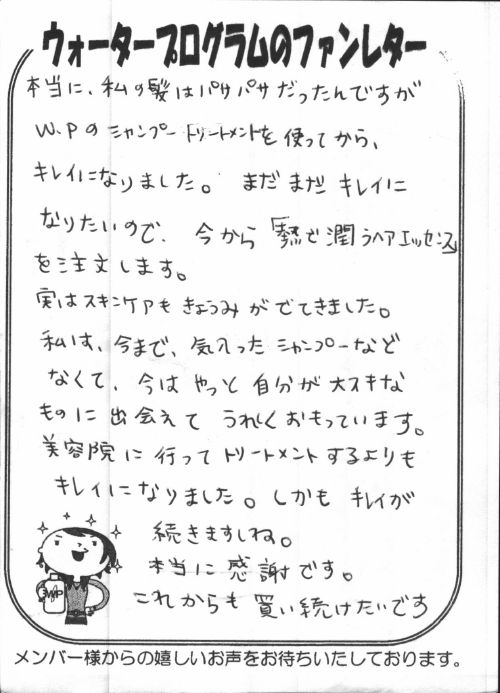 ウォータープログラムのファンレター
本当に、私の髪はパサパサだったんですが
W.Pのシャンプー トリートメントを使ってから、
キレイになりました。 まだまだ キレイに
なりたいので、今から「熱で潤うヘアエッセンス」
を注文します。
実はスキンケアもきょうみがでてきました。
私は、今まで、気入ったシャンプーなど
なくて、今はやっと自分が大スキな
ものに出会えてうれしくおもっています。
美容院に行ってトリートメントするよりも
キレイになりました。しかもキレイが
続きますしね。
本当に感謝です。
これからも買い続けたいです
W/P
メンバー様からの嬉しいお声をお待ちいたしております。